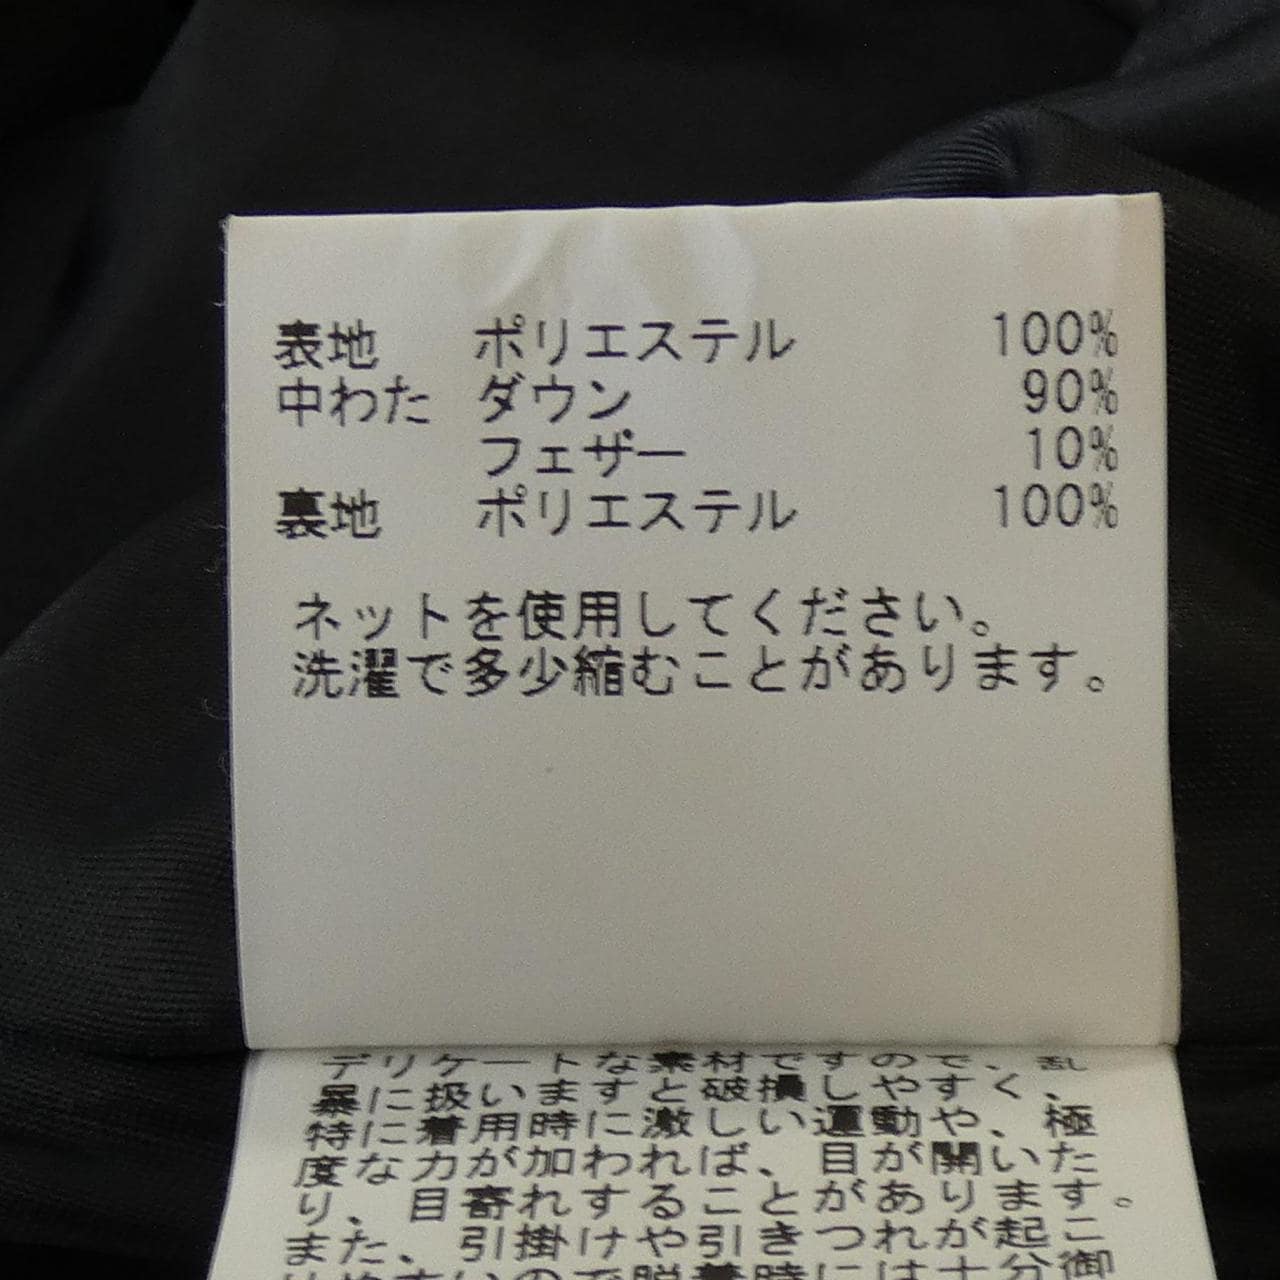 表地 ポリエステル 100%
中わた ダウン 90%
フェザー 10%
裏地 ポリエステル 100%
ネットを使用してください。
洗濯で多少縮むことがあります。
デリケートな素材ですので、乱
暴に扱いますと破損しやすく、
特に着用時に激しい運動や、極
度な力が加われば、目が開いた
り、目寄れすることがあります。
また、引掛けや引きつれが起こ
りやすいので脱着時には十分御